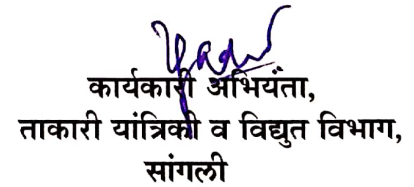 कार्यकारी अभियंता,
ताकारी यांत्रिकी व विद्युत विभाग,
सांगली